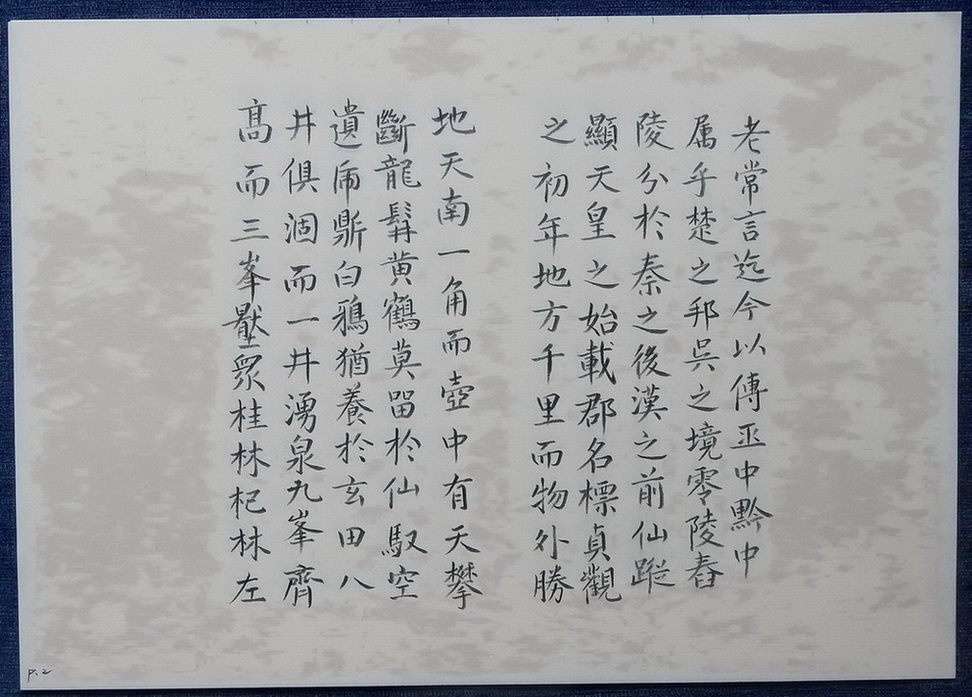 老常言迄今以傳巫中黔中
属乎楚之邦吳之境零陵舂
陵分於秦之後漢之前仙蹤
顯天皇之始載郡名標貞觀
之初年地方千里而物外勝
地天南一角而壺中有天攀
斷龍髯黄鶴莫留於仙馭空
遺鬲鼎白鴉猶養於玄田八
井俱涸而一井湧泉九峯齊
高而三峯壓眾桂林杞林左
P.2